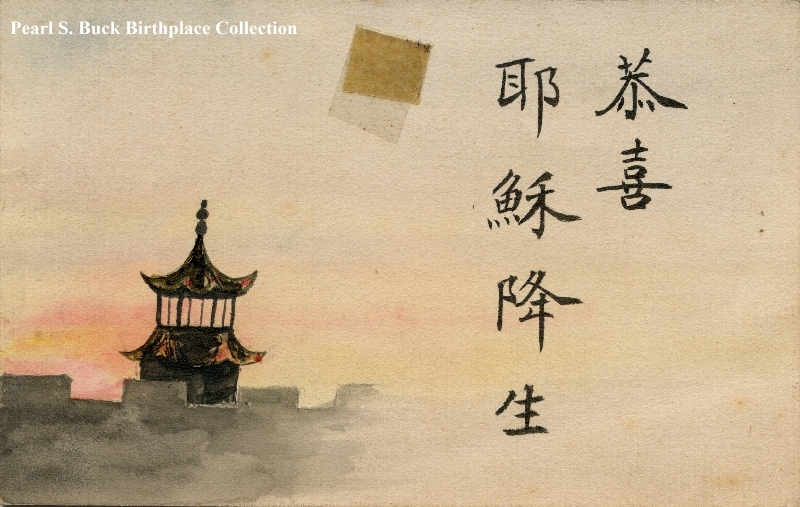 Pearl S. Buck Birthplace Collection
恭喜
耶穌降生